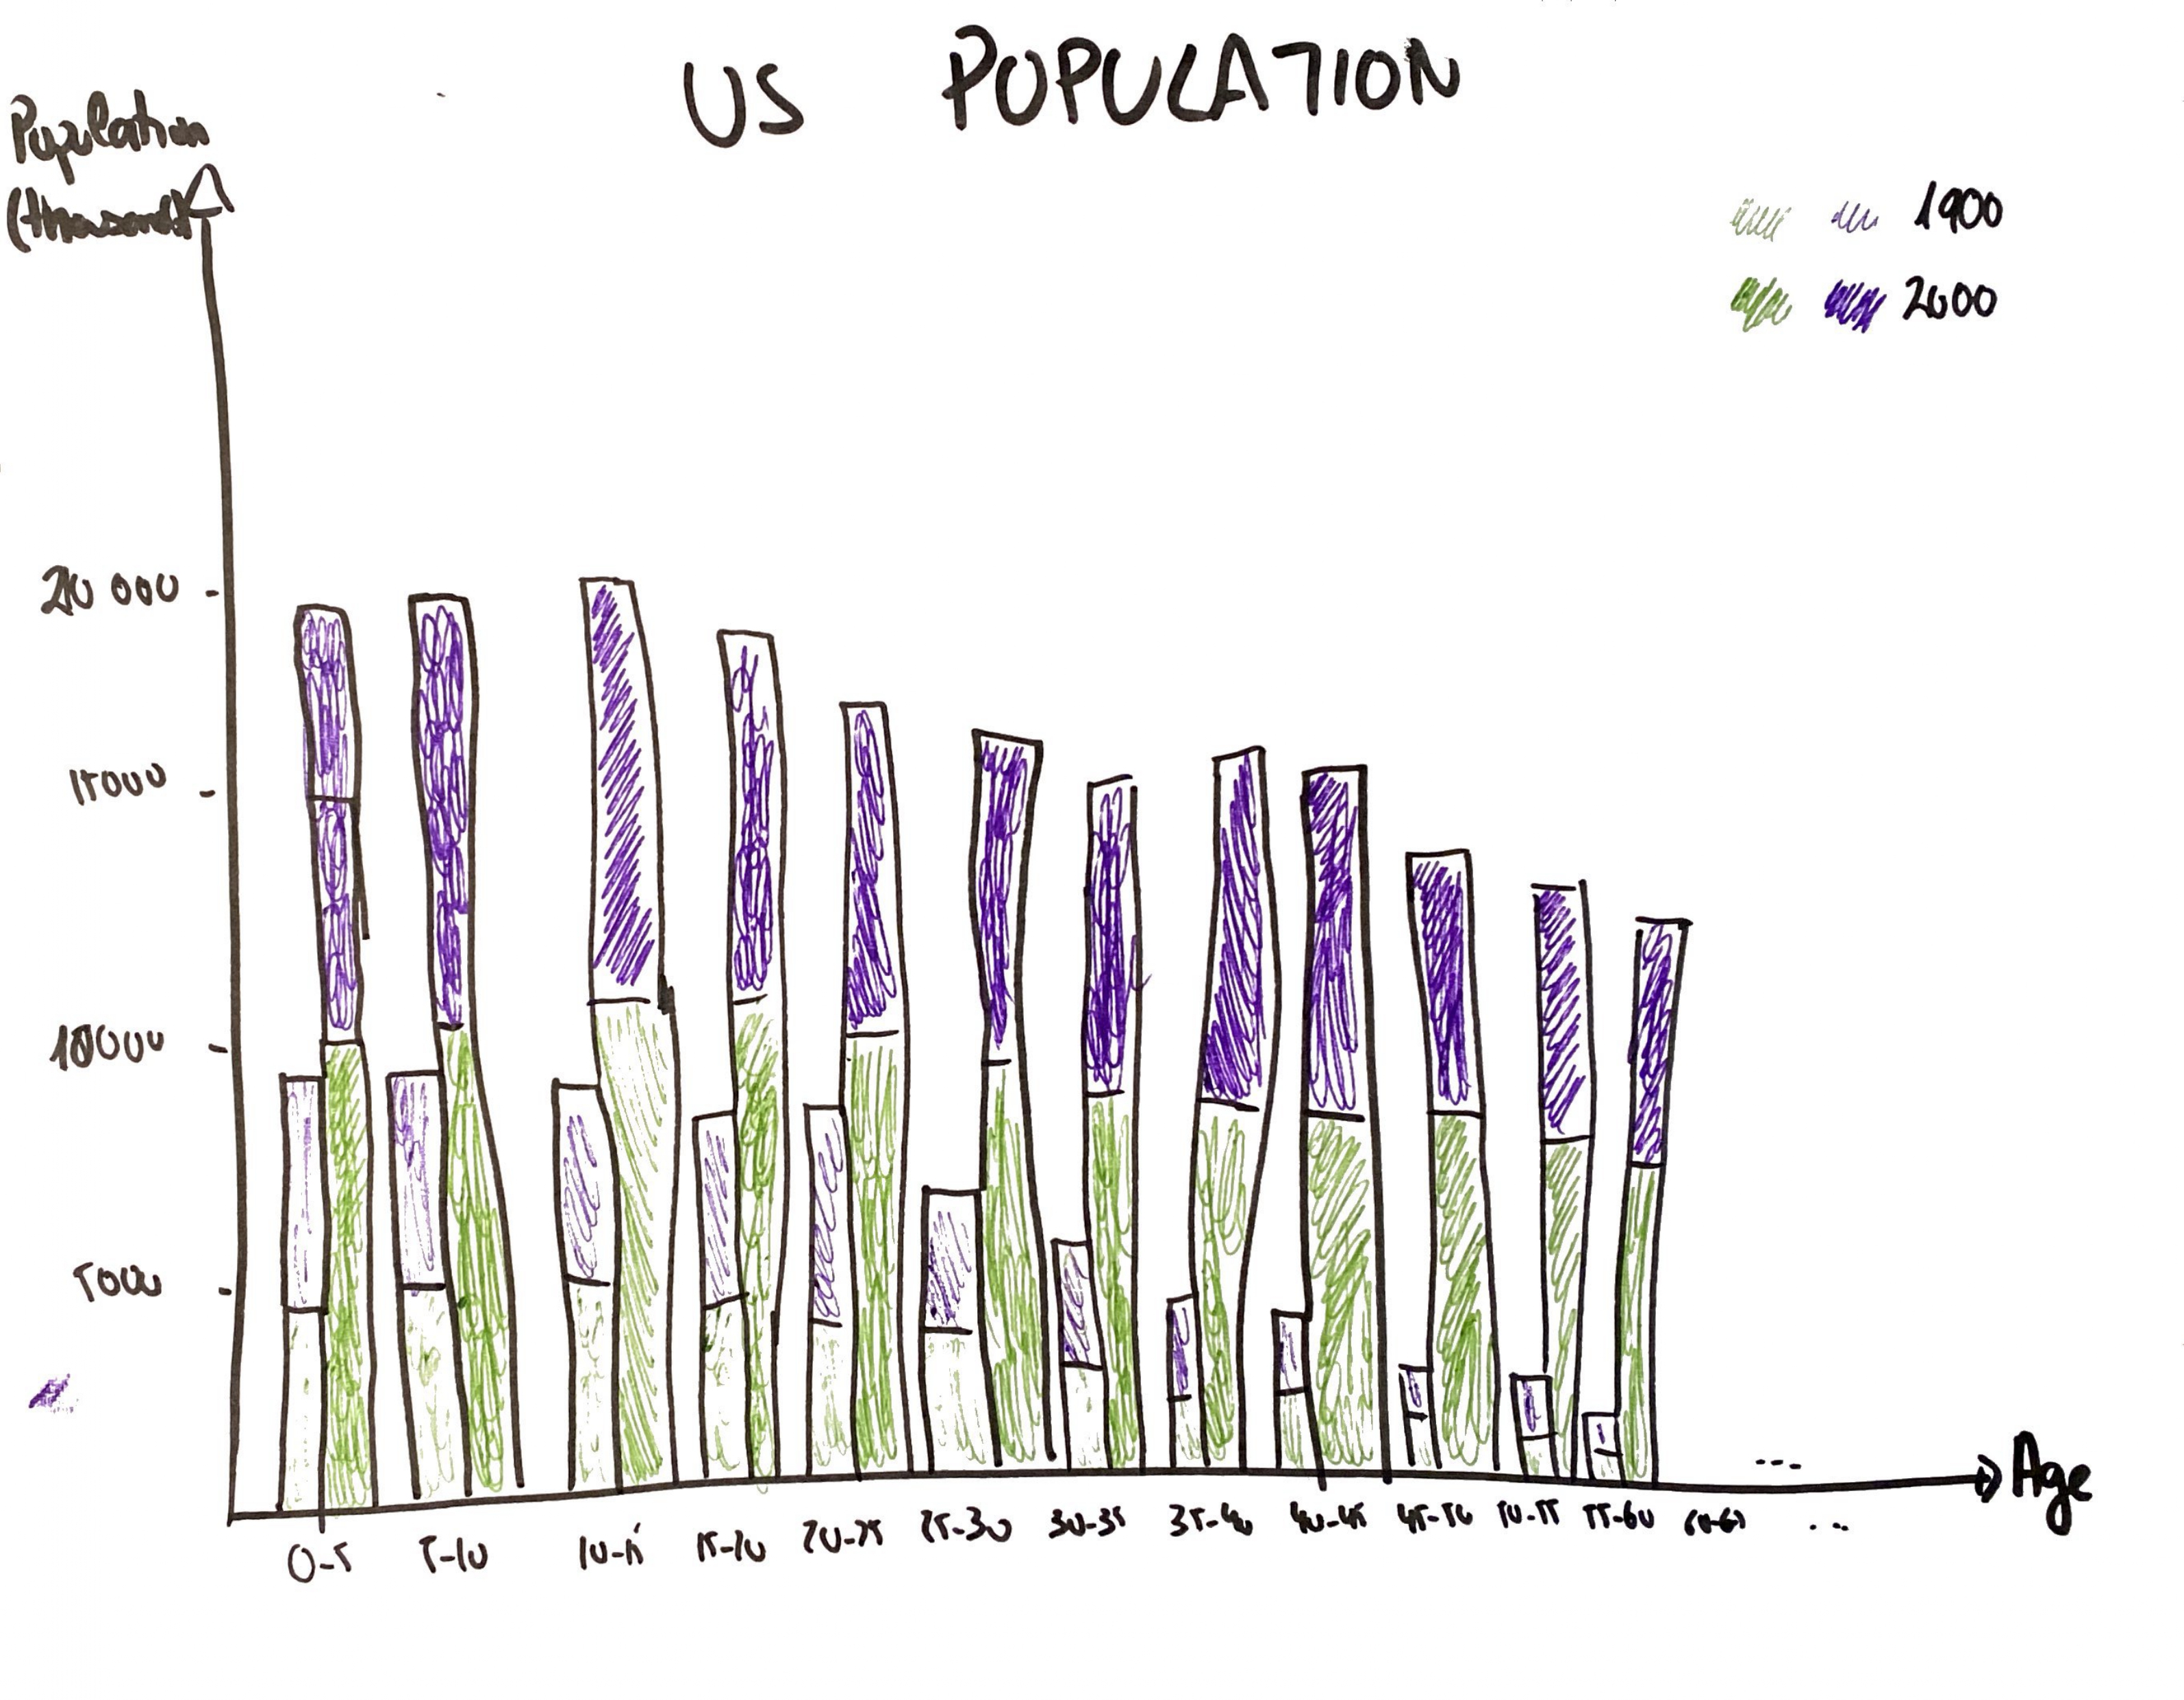 US POPULATION
Population
(thousand)
1900
2000
20 000
15000
10000
5000
Age
0-5
5-10
10-15
15-20
20-25
25-30
30-35
35-40
40-45
45-50
50-55
55-60
...
...